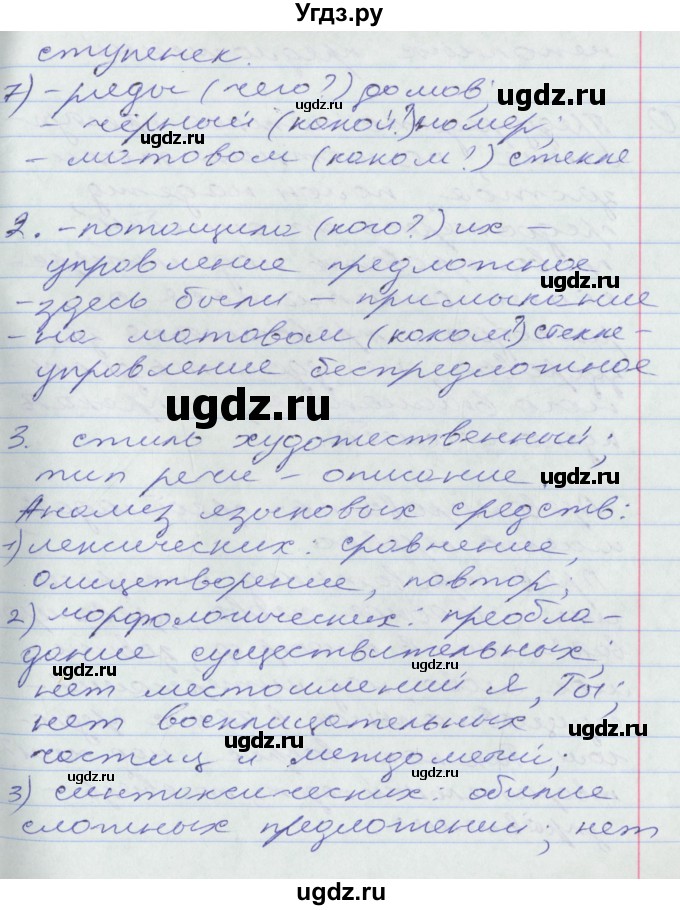 Угдз.ру
ступенек.
7) – ряды (чего?) домов;
– чёрный (какой?) номер;
– матовом (каком?) стекле
ugdz.ru
2. – потащила (кого?) их –
управление предложное
– здесь были – примыкание
– на матовом (каком?) стекле –
управление беспредложное
ugdz.ru
ugdz.ru
3. стиль художественный;
тип речи – описание.
ugdz.ru
Анализ языковых средств:
1) лексических: сравнение,
олицетворение, повтор;
2) морфологических: преобла-
дание существительных;
нет местоимений я, ты;
ugdz.ru
нет восклицательных
частиц и междометий;
ugdz.ru
3) синтаксических: обилие
сложных предложений, нет
ugdz.ru
ugdz.ru